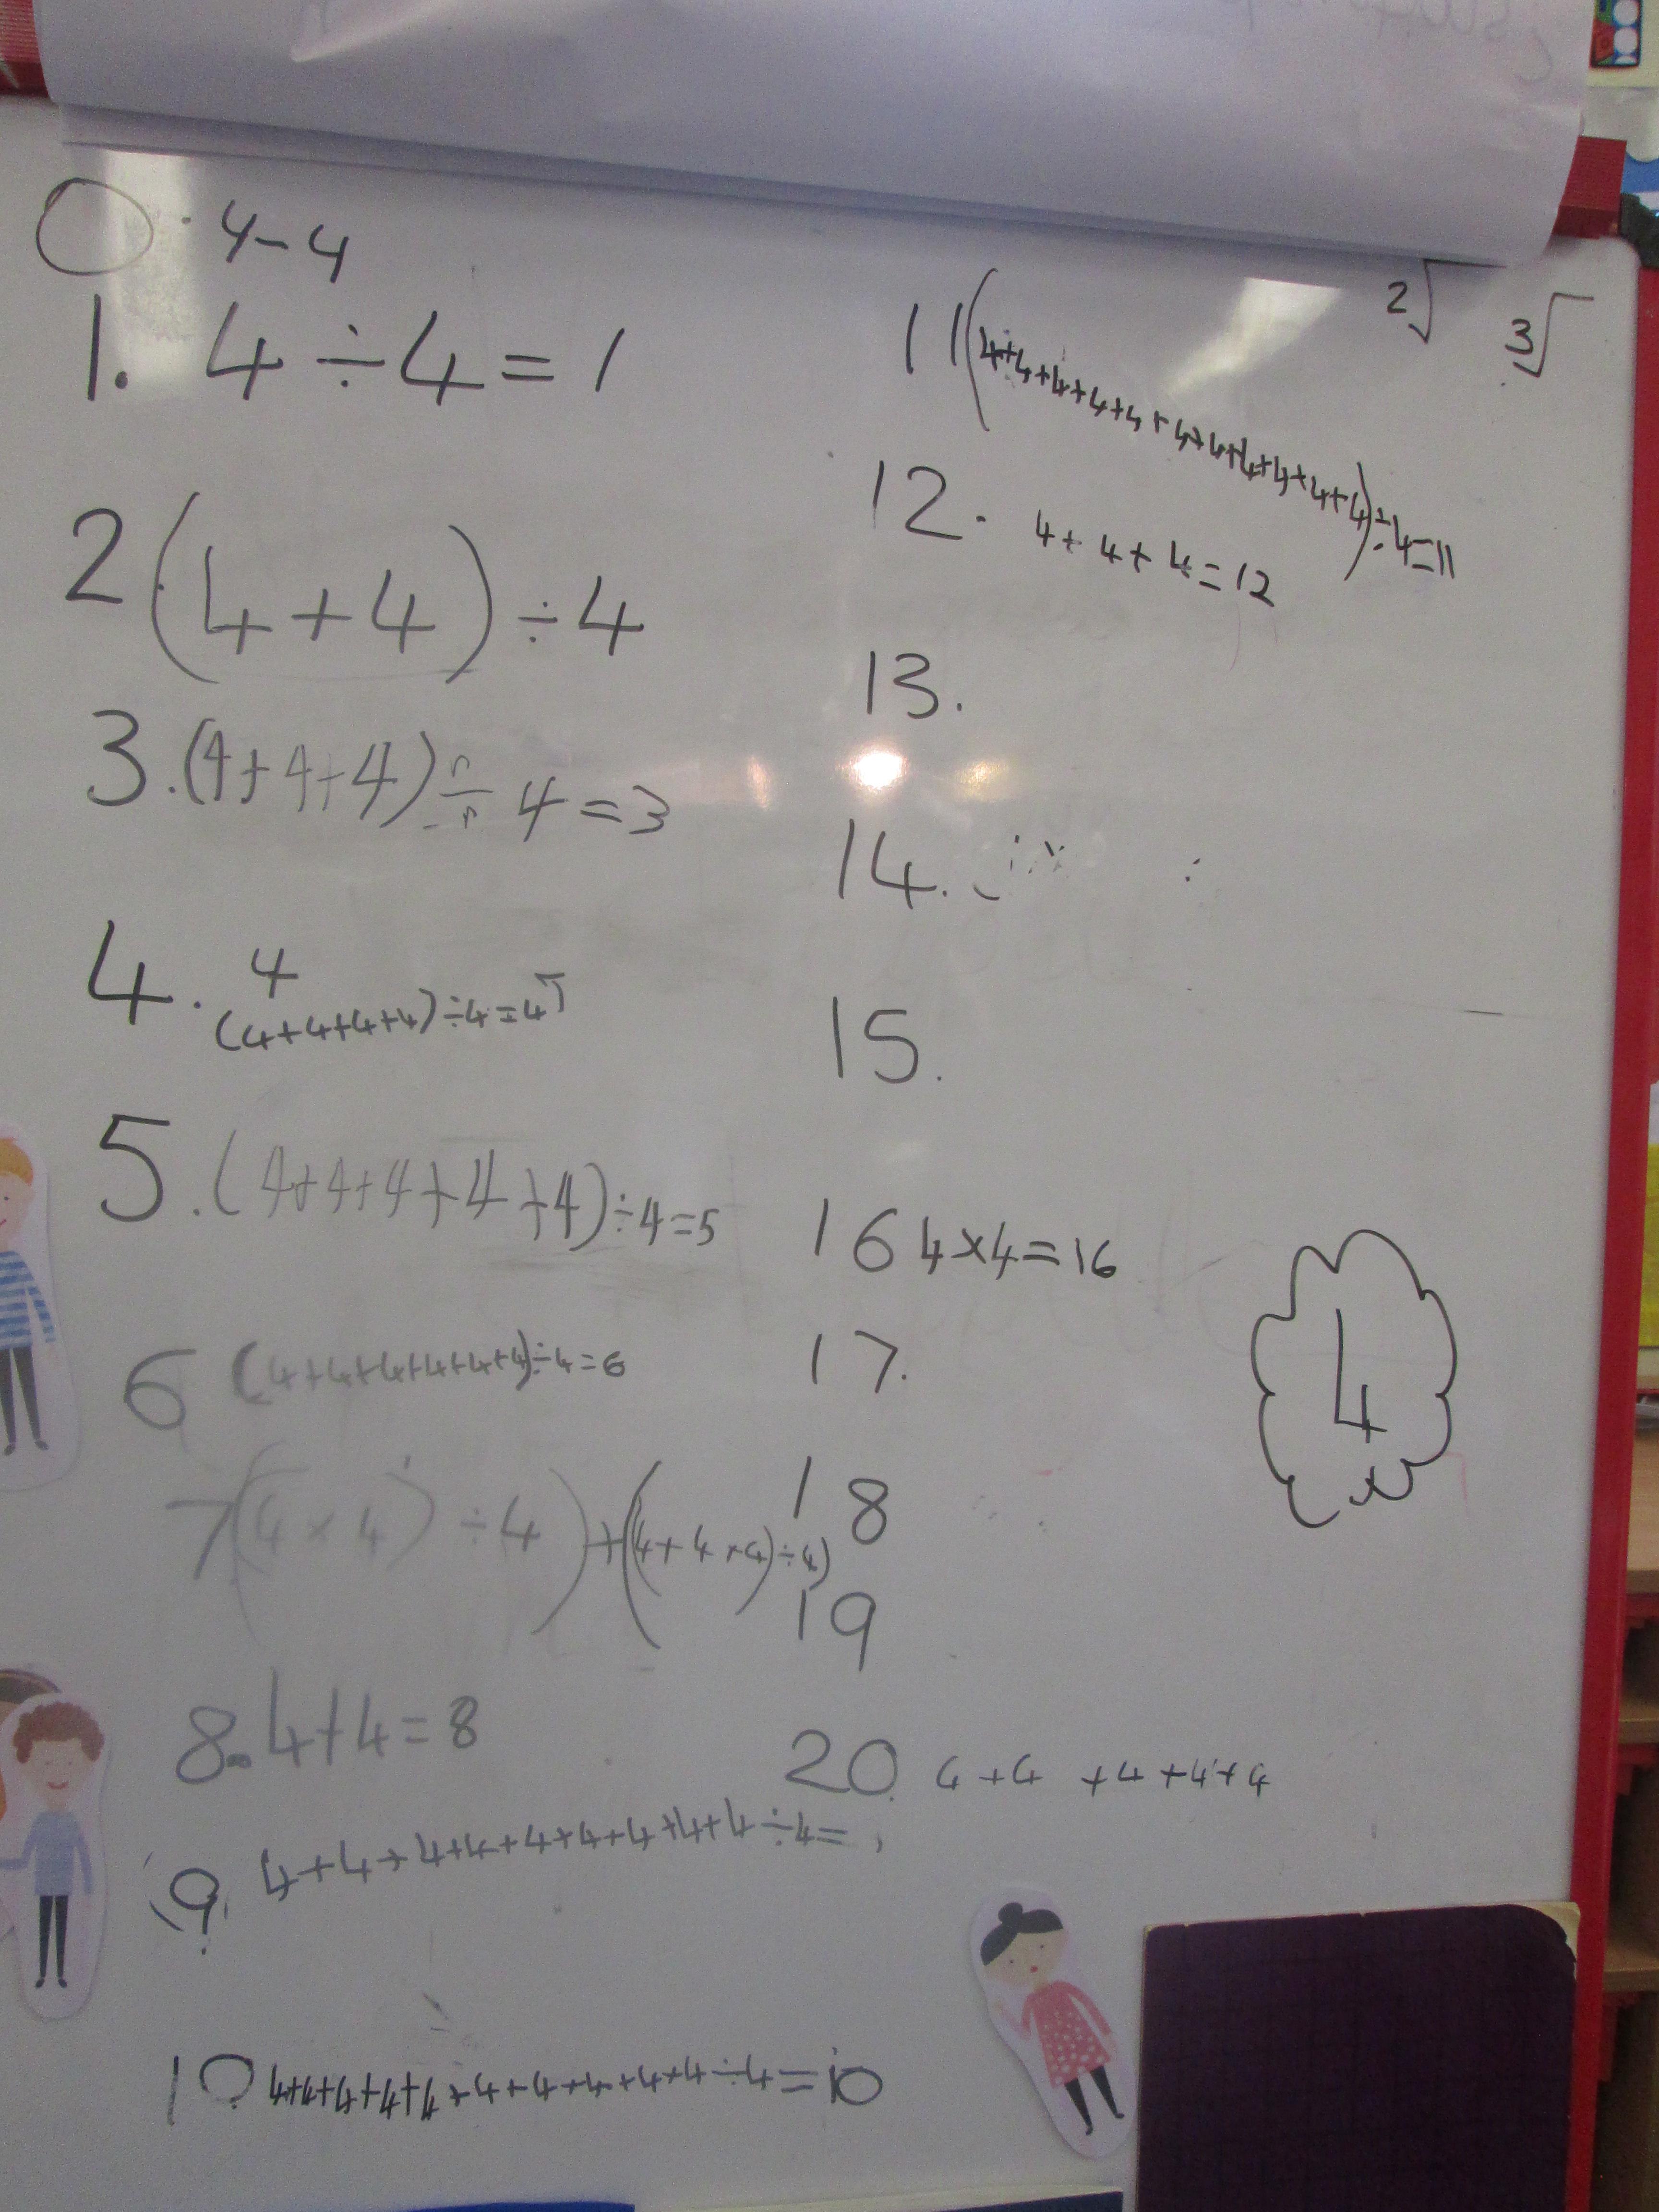 0. 4-4
1. 4÷4=1
2 (4+4)÷4
3. (4+4+4)÷4=3
4. 4
(4+4+4+4)÷4=4
5. (4+4+4+4+4)÷4=5
6 (4+4+4+4+4+4)÷4=6
7 ((4×4)÷4)+((4+4+4)÷4)
8. 4+4=8
9. 4+4+4+4+4+4+4+4+4÷4=
10 4+4+4+4+4+4+4+4+4+4÷4=10
11 (4+4+4+4+4+4+4+4+4+4+4)÷4=11
12. 4+4+4=12
13.
14.
15.
16 4×4=16
17.
18
19
20. 4+4+4+4+4
2√
3√
4